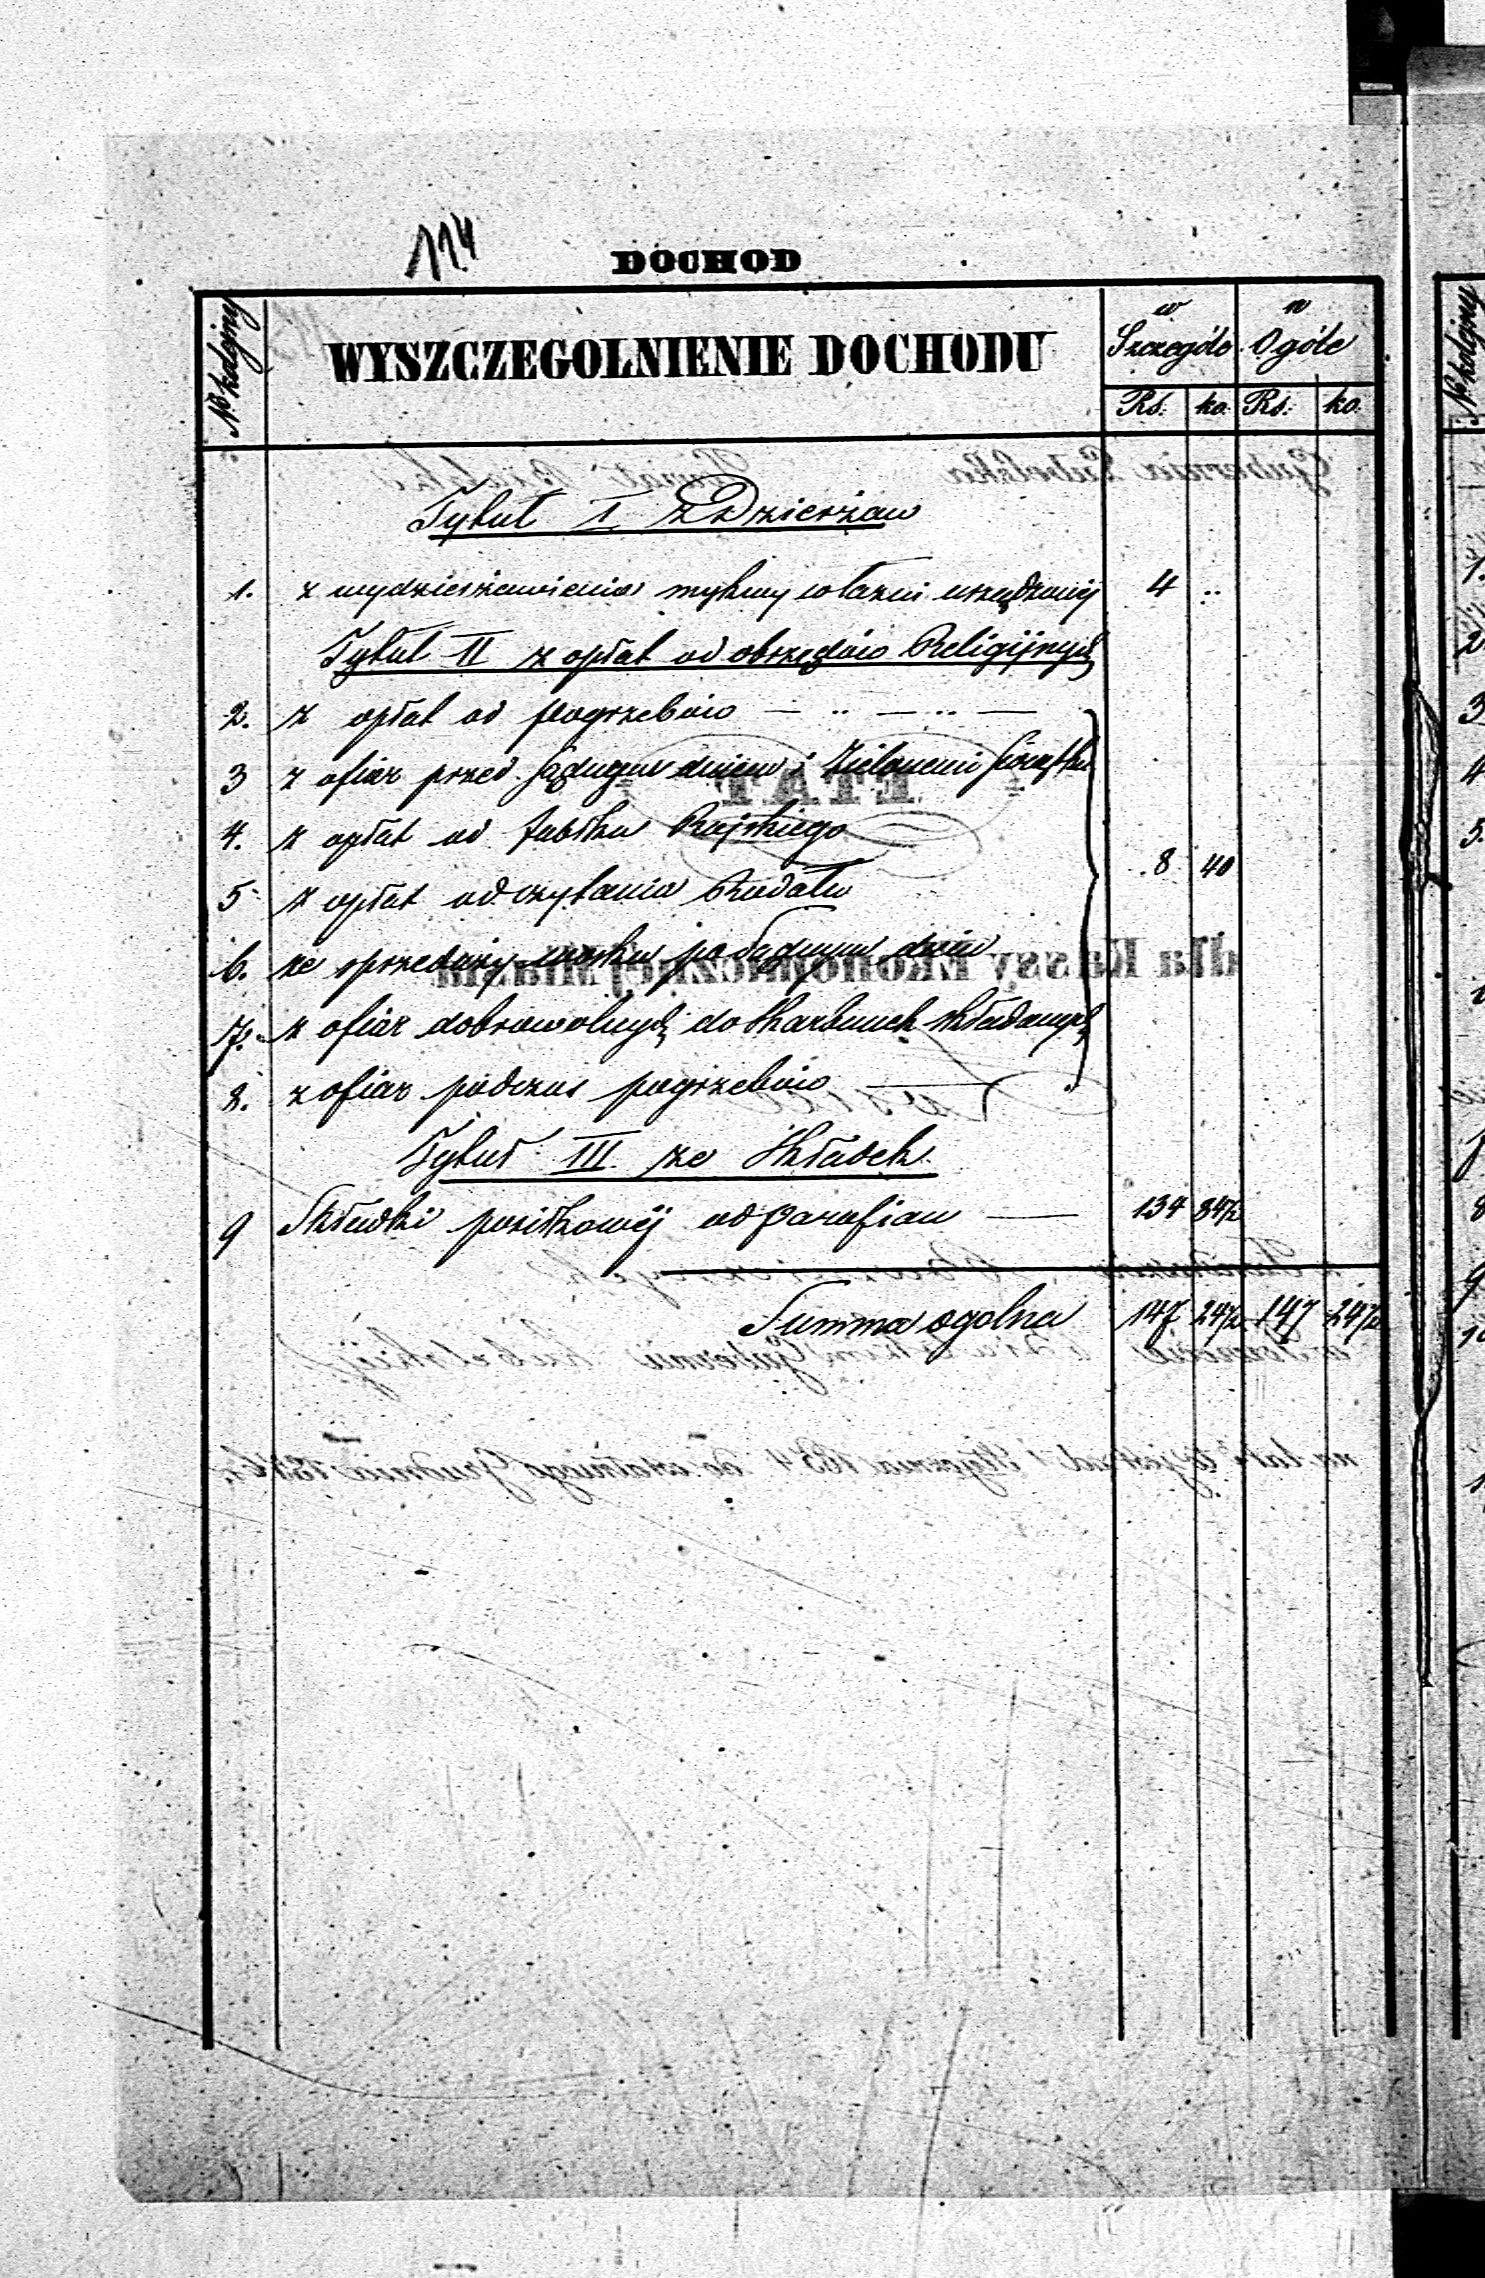 114
DOCHOD
№ kolejny
WYSZCZEGOLNIENIE DOCHODU
w Szczególe
w Ogóle
Rs. ko. Rs. ko.
Tytuł I. z Dzierżaw
1. z wydzierżawienia mykwy w łazni urządzonéj 4 ..
Tytuł II z opłat od obrzędów Religijnych
2. z opłat od pogrzebów
3 z ofiar przed Sądnym dniem i Zielonemi Swiątka
4. z opłat od Jabłka Rajskiego
8 40
5 z opłat od czytania Rodału
6. ze sprzedaży wosku po Sądnym dniu
7. z ofiar dobrowolnych do skarbonek składanych
8. z ofiar podczas pogrzebów
Tytuł III ze Składek
9 Składki posiłkowéj od parafian 134 84½
Summa ogolna 147 24½ 147 24½